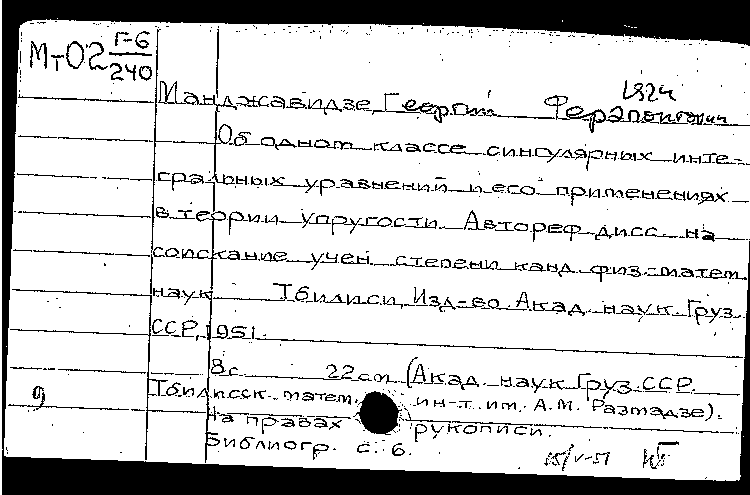 МтО2 Г-6
240
1924
Манджавидзе, Георгий Ферапонтович
Об одном классе сингулярных инте-
гральных уравнений и его применениях
в теории упругости. Автореф. дисс. на
соискание учен. степени канд. физ.-матем.
наук. Тбилиси, Изд-во Акад. наук Груз.
ССР, 1951.
8 с. 22 см. (Акад. наук Груз. ССР.
9 Тбилисск. матем. ин-т им. А. М. Размадзе).
На правах рукописи.
Библиогр. с. 6.
15/V-51